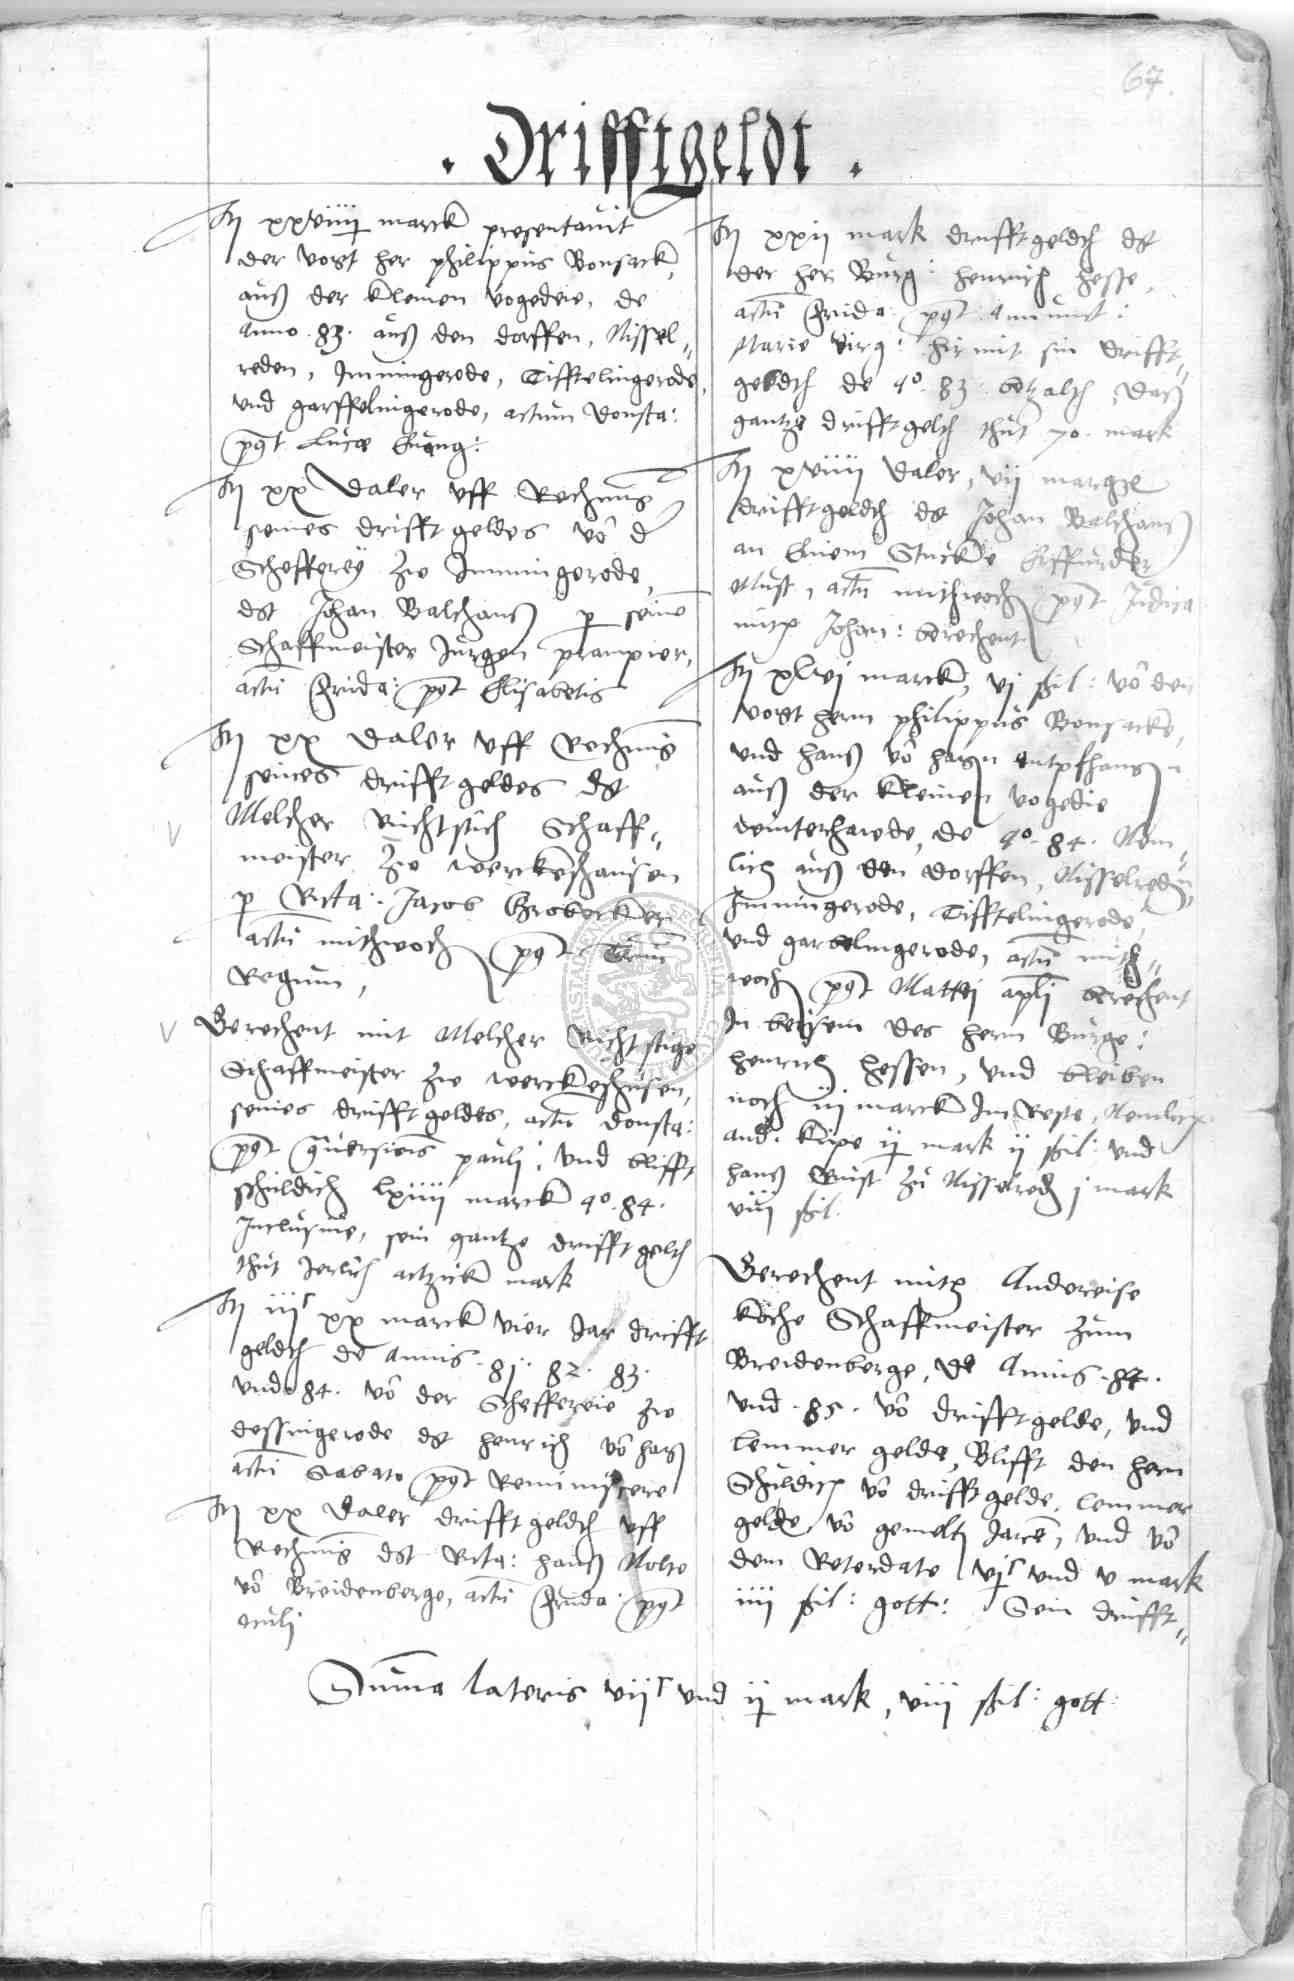 67.
. Drifftgeldt .
It xxviiii marck presentavit
der vogt her philippus Bonsack,
auß der kleinen vogedeie, de
Anno .83. auß den dorffen, Nissel„
reden, Immingerode, Tifftelingerode,
und garffelingerode, actum donsta:
pgt Luce Evang:
It xx daler uff Rechnūg
seines drifft geldes vō d
Schefferey zw Immingerode,
dt Johan Balthauß p seinē
Schaffmeister Jurgen
actū frida: pgt Elisabetis
It xx daler uff Rechnūg
seines drifft geldes dt
Melcher Richtstich Schaff„
meister zw werckeshausen
p Rita: Jacob Grobecker
actū mithwoch pgt Triū
Regum,
Berechent mit Melcher Richtstige
Schaffmeister zw werckeshusen,
seines drifft geldes, actū donsta:
pgt qversiōis pauli, und blifft
schuldich lxiiii marck ao. 84.
Inclusive, sein gantze drifft gelth
thut Jerlich achtzick mark
It iiic xx marck vier Jar drifft
geldth de annis .81. 82. 83.
und .84. vō der Schefferie zw
dessingerode dt henrich vō hagē
actū Sabato pgt Reminiscere
It xx daler drifft geldth uff
Rechnūg dt Rita: hanß Nolte
vō Breidenberge, actū frida: pgt
oculi
It xxii mark drifftgeldth dt
der her Burg: henrich hesse,
actū frida: pgt Anunct:
Marie virg: hirmit sin drifft„
geldth de ao. 83. betzalth, daß
gantze drifftgelth thut 70. mark
It xviiii daler, vii margk
drifftgeldth dt Johan Balthauß
an Einem Stucke Erffurder
actū mithwoch pgt Judica
mitz Johan: berechent
It xlvi marck, vi ßil: vō den
vogt hern philippus Bonsacke,
und hanß vō hagen entpfhangen
auß der kleinen vogedie
de ao. 84. Nem„
lich auß den dorffen, Nisselreden,
Immingerode, Tifftelingerode,
und garbelingerode, actū mith„
woch pgt Mattej apli berechent
In beisein des hern Burge:
henrich hessen, und bleiben
noch iii marck Im Reste, Nemlich
and: ii mark ii ßil: und
hanß zu Nisselredē j mark
viii ßil.
Berechent mitz Andereise
koche Schaffmeister zum
Breidenberge, de Annis .84.
und .85. vō drifftgelde, und
lemmer gelde, Blifft den hern
Schuldich vō drifft gelde, lemmer
gelde, vō gemeltē Jarē, und vō
dem Retardate vic und v mark
iiii ßil: gott: Sein drifft„
Suma lateris viic und ii mark, viii ßil: gott: